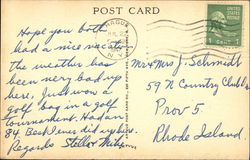 POST CARD
HAGUE
N.Y.
1 CENT 1
Hope you both
had a nice
the weather has
been very bad up
here, Just won a
golf bag in a golf
tournament. Had an
84. Best I ever did up here.
Regards
Mr & Mrs J. Schmidt
59 N Country Club
Prov 5
Rhode Island.